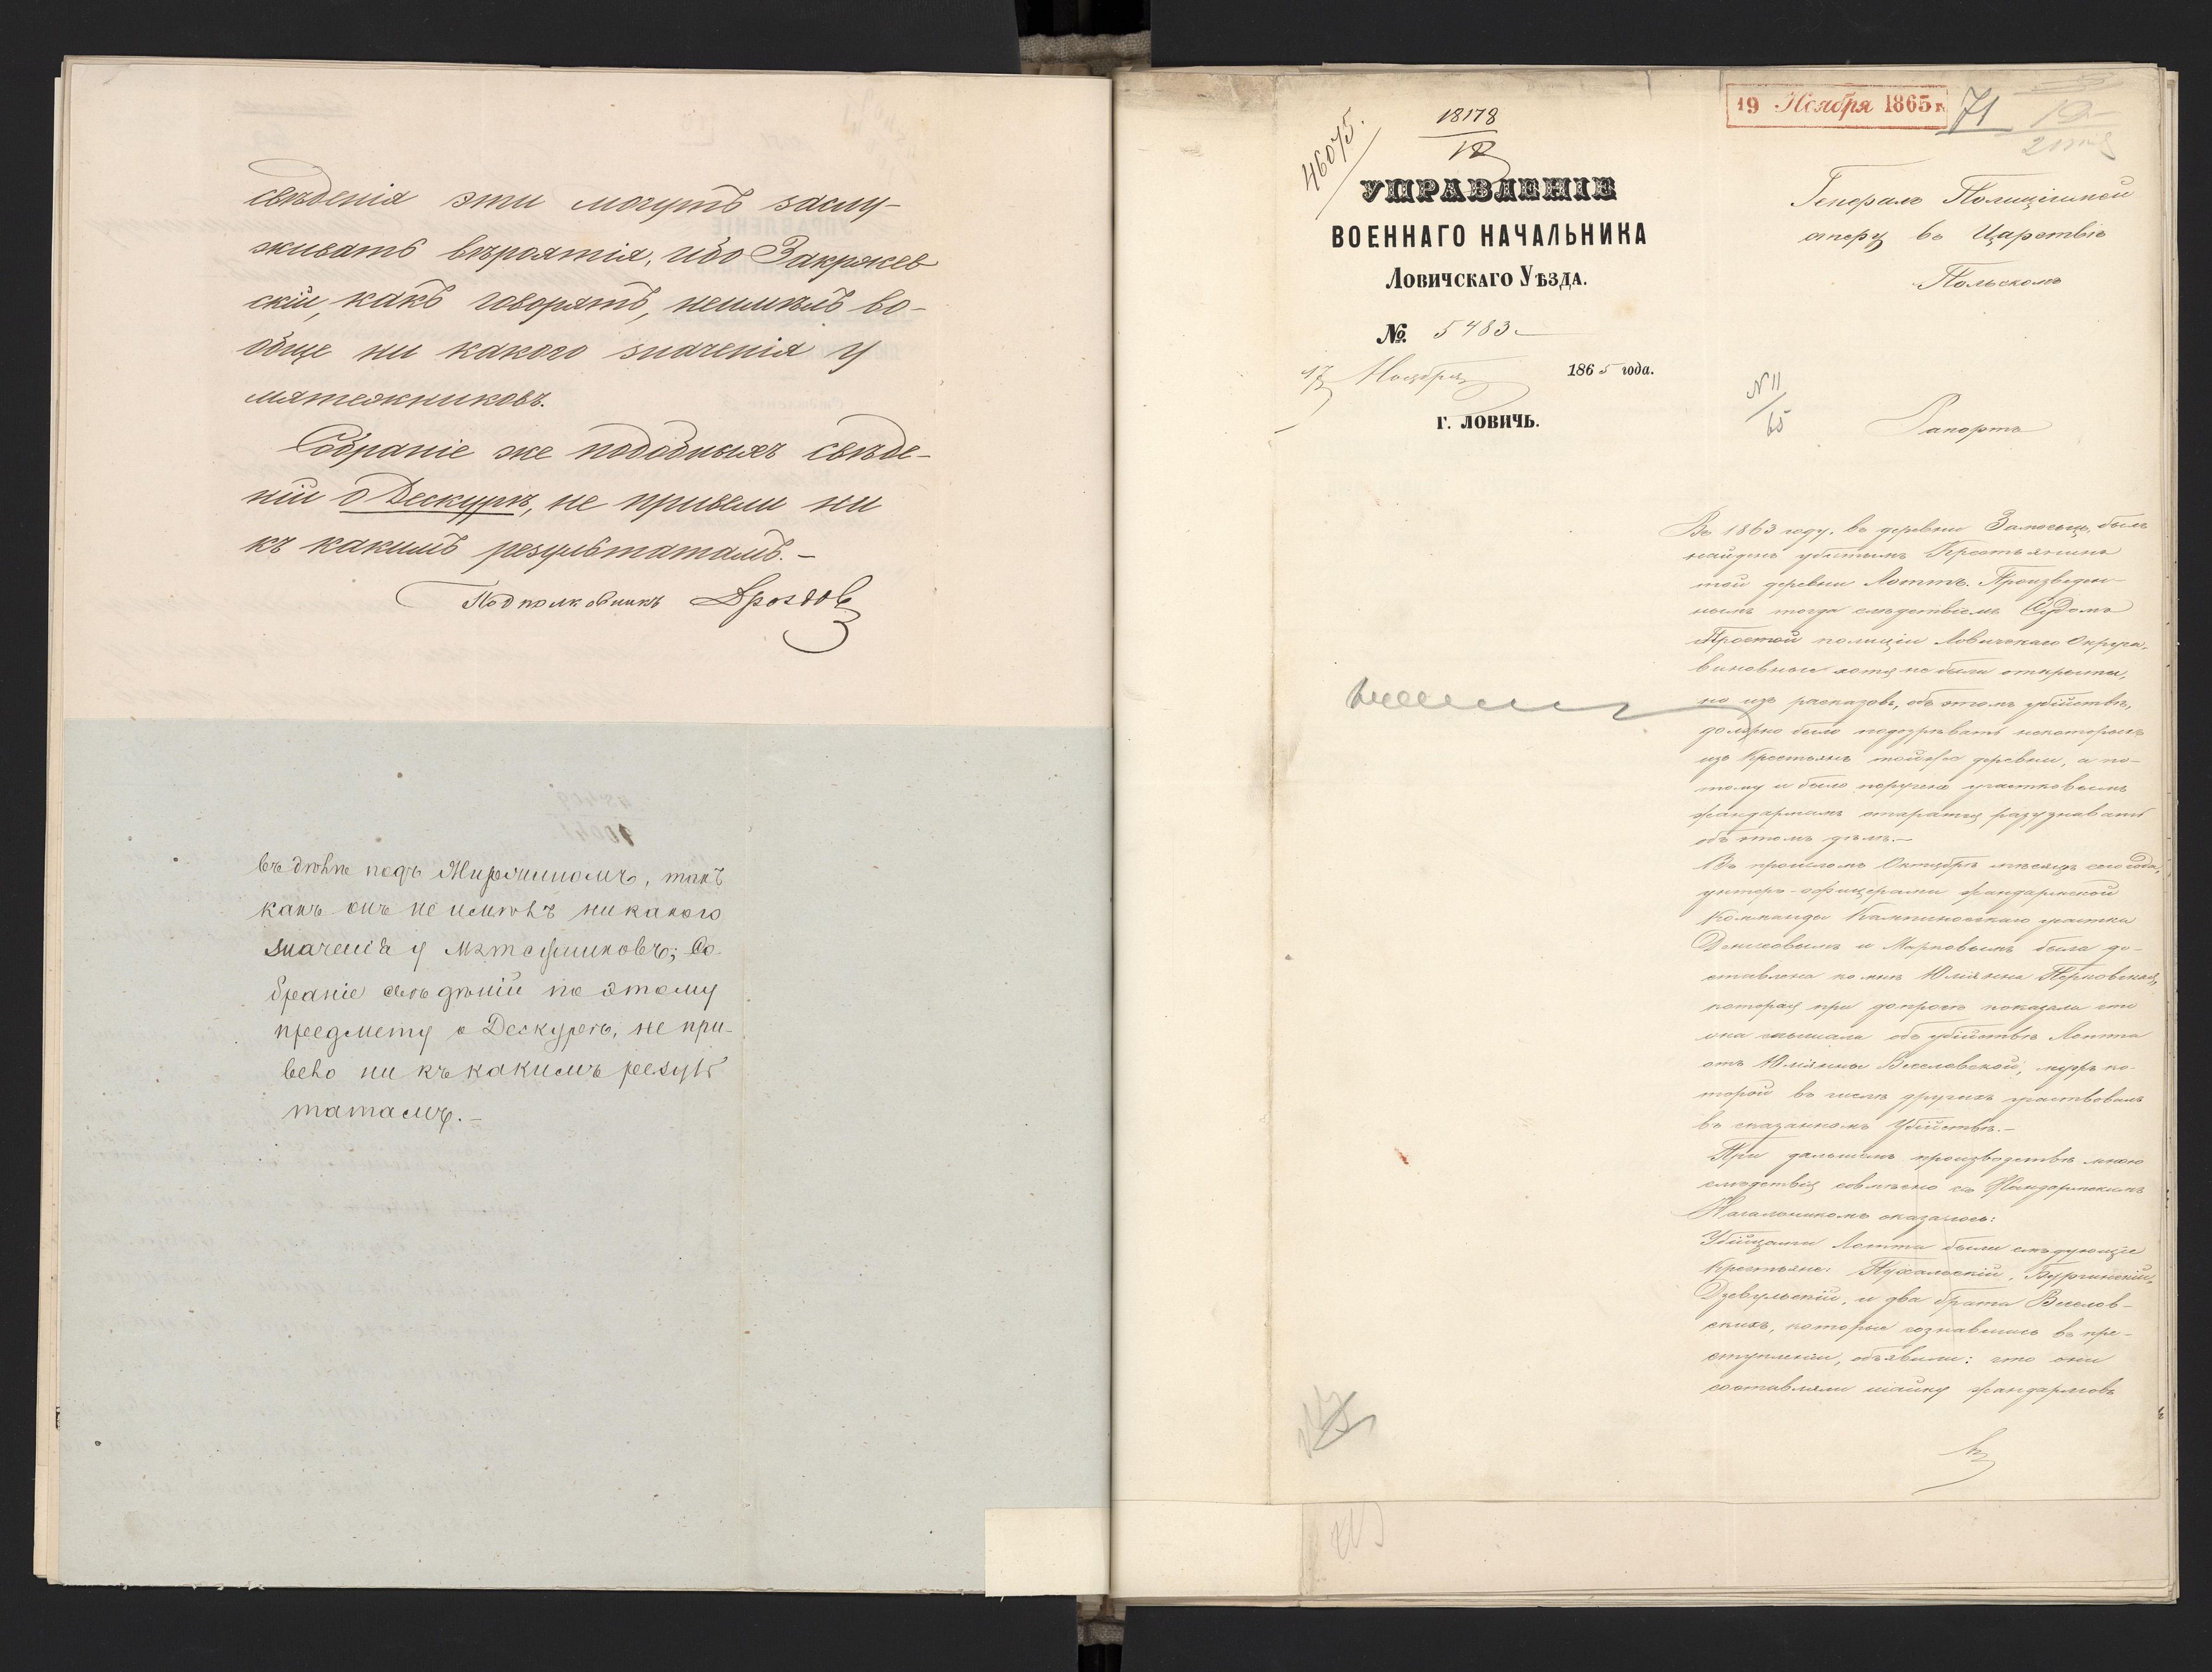 свѣденія эти могутъ заслу-
живать вѣроятія, ибо Закржев
скій, какъ говорятъ, неимѣлъ во-
обще ни какого значенія у
мятежниковъ.
Собраніе же подобныхъ свѣде-
ній о Дескурѣ, не привели ни
къ какимъ результатамъ.-
Подполковникъ Дроздов
въ дѣлѣ подъ, такъ
какъ онъ не имѣлъ никакого
значенія у мятежниковъ; Со-
браніе свѣдѣній по этому
предмету о Дескурѣ, не при-
вело ни къ какимъ резуль
татамъ.-
46075.
18178
19 Ноября 1865 г.
71
УПРАВЛЕНІЕ
ВОЕННАГО НАЧАЛЬНИКА
Ловичскаго Уѣзда.
№ 5483
17 Ноября 1865 года.
г. ЛОВИЧЬ.
Генералъ Полиціймей
стеру въ Царствѣ
Польскомъ
N 11
65
Рапортъ
Въ 1863 году, въ деревни былъ
найденъ убитымъ Крестьянинъ
той деревни Лоттъ. Произведен-
нымъ тогда слѣдствіемъ Судомъ
Простой полиціи Ловичскаго Округа,
виновные хотя не были открыты,
но изъ расказовъ, объ этомъ убійствѣ,
должно было подозрѣвать некоторыхъ
изъ Крестьянъ тойже деревни, а по-
тому и было поручено участковымъ
жандармамъ стараться разузнавать
объ этомъ дѣлѣ.-
Въ прошломъ Октябрѣ мѣсяцѣ сего года,
унтеръ-офицерами жандармской
Комманды участка
и Марковымъ была до-
ставлена ко мнѣ Юліянна
которая при допросѣ показала что
она слышала объ убійствѣ Лотта
отъ Юліянны Веселовской, мужъ ко-
торой въ числѣ другихъ участвовалъ
въ сказанномъ Убійствѣ.-
При дальшемъ производствѣ мною
слѣдствія совмѣсно съ Жандармскимъ
Начальникомъ оказалось:
Убійцами Лотта были слѣдующіе
Крестьяне:
и два брата Веселов-
скихъ, которые сознавшись въ пре-
ступленіи, объявили: что они
составляли шайку жандармовъ